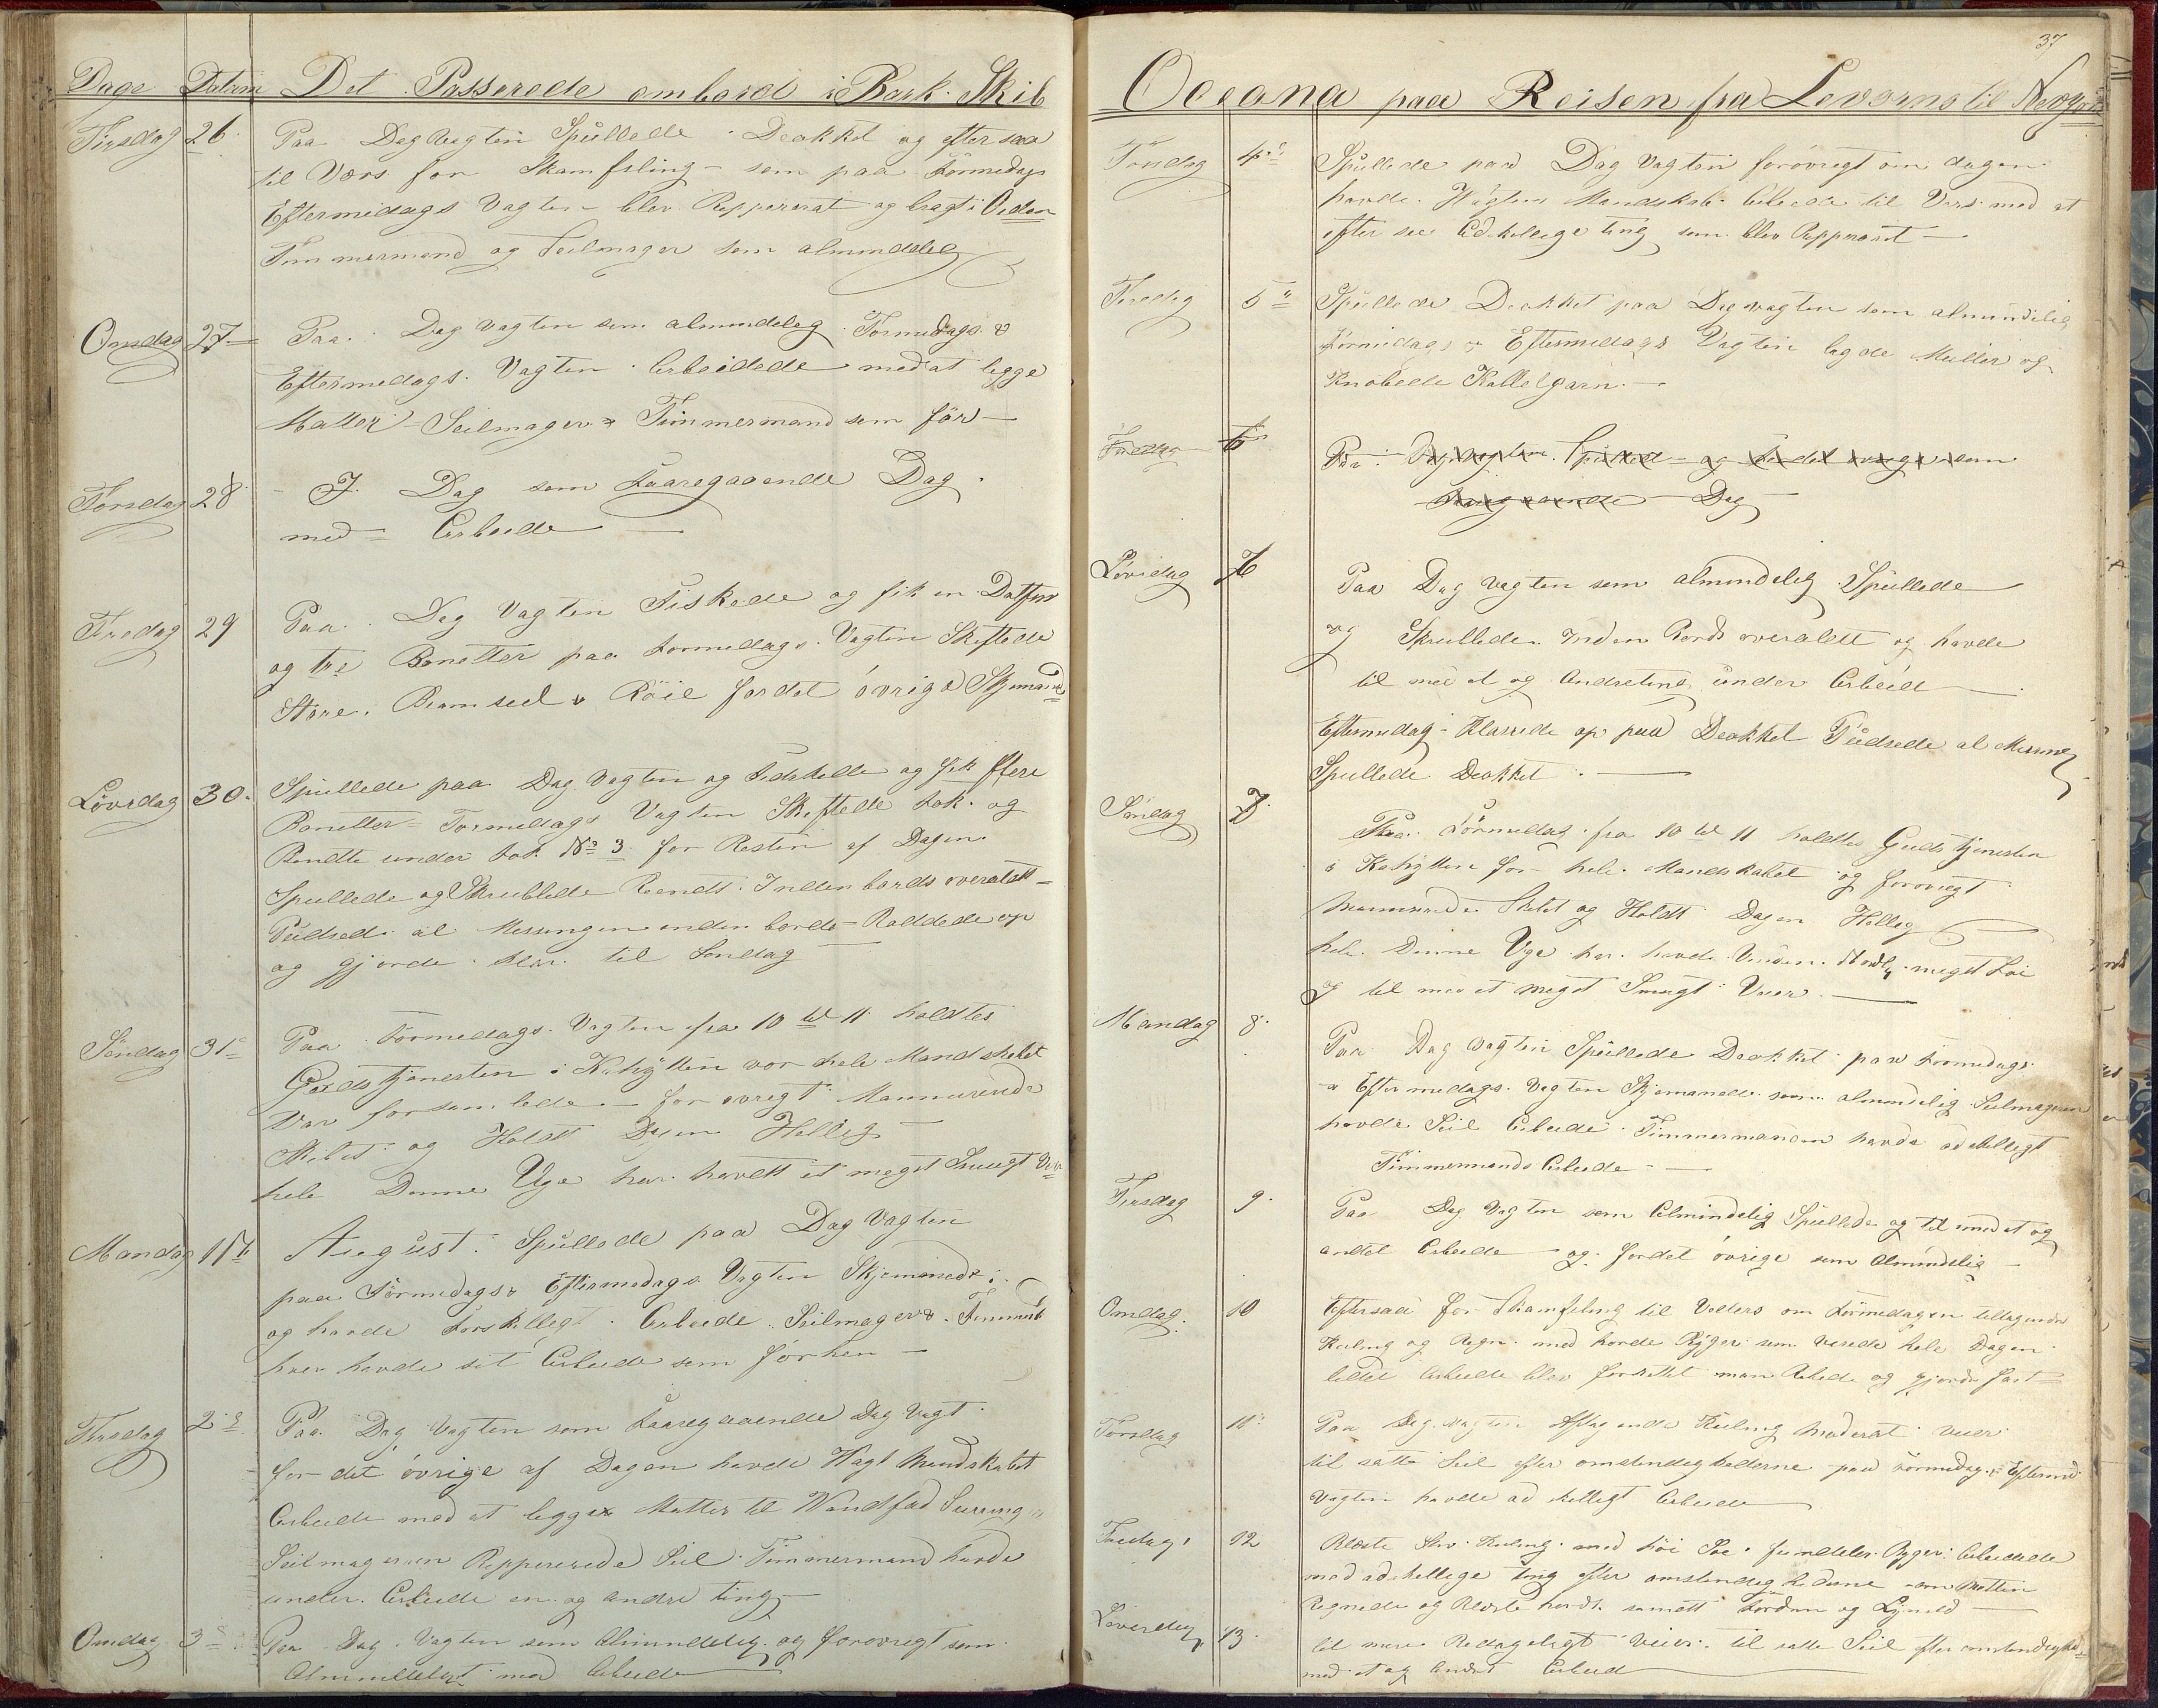 Dage Datum Det Passerede ombord i Bark Skib
Tirsdag 26 Paa Dag Vagten Spullede Deakket og efter saa
til Værs for Skamfiling - som paa Formedags
Eftermidags Vagten blev Repparerat og bragt i Orden
Timmermand og Seilmager som almindelig
Onsdag 27 Paa Dag Vagten som almendeleg Formedags &
Eftermedags Vagten Arbeidede med at legge
Matter Seilmager & Timmermand som för
Torsdag 28 I Dag som Faaregaaende Dag
med Arbeide
Fredag 29 Paa Dag Vagten Fiskede og fik en
og tre Bonetter paa Formedags Vagten Skeftede
Store Bramseil & Röil for det övrige Skjemand
Lövedag 30 Spullede paa Dag Vagten og og fik flere
Boneller Formedags Vagten Skeftede Fok og
Bendte under Fok No 3 for Resten af Dagen
Spullede og Skrubbede Rendt Inden bords overaltt
Pudsed al Messingen inden bords - Raddede op
og gjorde klar til Sondag
Söndag 31 Paa Formedags Vagten fra 10 til 11 holdtes
Gudstjenesten i Kahytten vor hele Mandskabet
Var forsamlede - for ovregt Mannurende
Skibet og Holdt Dagen Hellig
hele Denne Uge har havdt et meget Smugt
Mandag 1ste August Spullede paa Dag Vagten
paa Formedags & Eftermedags Vagten Skjemmede
og havde Forskelligt Arbeide Seilmager &
hver havde sit Arbeide som förhen
Tirsdag 2 Paa Dag Vagten som Faaregaaende Dag Vagt
for det övrige af Dagen havde Vagt Mandskabet
Arbeide med at legge Matter til Vandfad Surring
Seilmageren Reppererede Seil Timmermand havde
under Arbeide en og andre ting
Onsdag 3 Paa Dag Vagten som Almendeleg og forovregt som
Almendeligt med Arbeide
37
Oceana paa Reisen fra Levorno til Newyork
Torsdag 4 Spullede paa Dag Vagten forövregt om dagen
havde Vagtens Mandskab Arbeide til Værs med at
efter see Adskelege ting som blev Repparert
Fredag 5 Spullede Deakket paa Dagvagten som almindelig
Formidags & Eftermedags Vagten lagde Matter og
Knobede Kabbelgarn
Fredag 6 Paa Dagvagten Spullede og for det övrige som
Faaregaaende Dag
Lövedag 6 Paa Dag vagten som almendelig Spullede
og Skrubbede Inden Bords overaldt og havde
til med et og Andreting under Arbeid
Eftermedag Klarede op paa Deakket Pudsede al Messing
Spullede Deakket
Söndag 7 Paa Formedag fra 10 til 11 holdtes Gudstjenesten
i Kahytten for hele Mandskabet og forovregt
Mannurede Skibet og Holdt Dagen Hellig
hele Denne Uge har havde Vinden Nordlig meget Löi
og til med et meget Smugt Veer
Mandag 8 Paa Dag Vagten Spullede Deakket paa Formedags
& Eftermedags Vagten Skjemande som almindelig Seilmageren
havde Seil Arbeide Timmermanden havde adskelligt
Timmermands Arbeide
Tirsdag 9 Paa Dag Vagten som Almindelig Spullede og til med et og
andet Arbeide og for det övrige som Almindelig
Onsdag 10 Eftersaa for Skamfeling til Veders om Formedagen tiltagende
Kuling og Regn med harde Byger som varede hele Dagen
lidet Arbeide blev forrettet man Rebede og gjorde fast
Torsdag 11 Paa Dag vagten Aftagende Kuling Moderat veer
til satte Seil efter omstendeghederne paa Formedag & Eftermd
Vagten havde adskelligt Arbeide
Fredag 12 Blæste Stiv Kuling med höi Söe Byger Arbeidede
med adskellege ting efter omstendeghederne om Natten
Regnede og Blæste hardt samtt Torden og Lyneld
Löverdag 13 til mere Bedageligt Veer til satte Seil efter omstendeghed
med et og Andet Arbeid